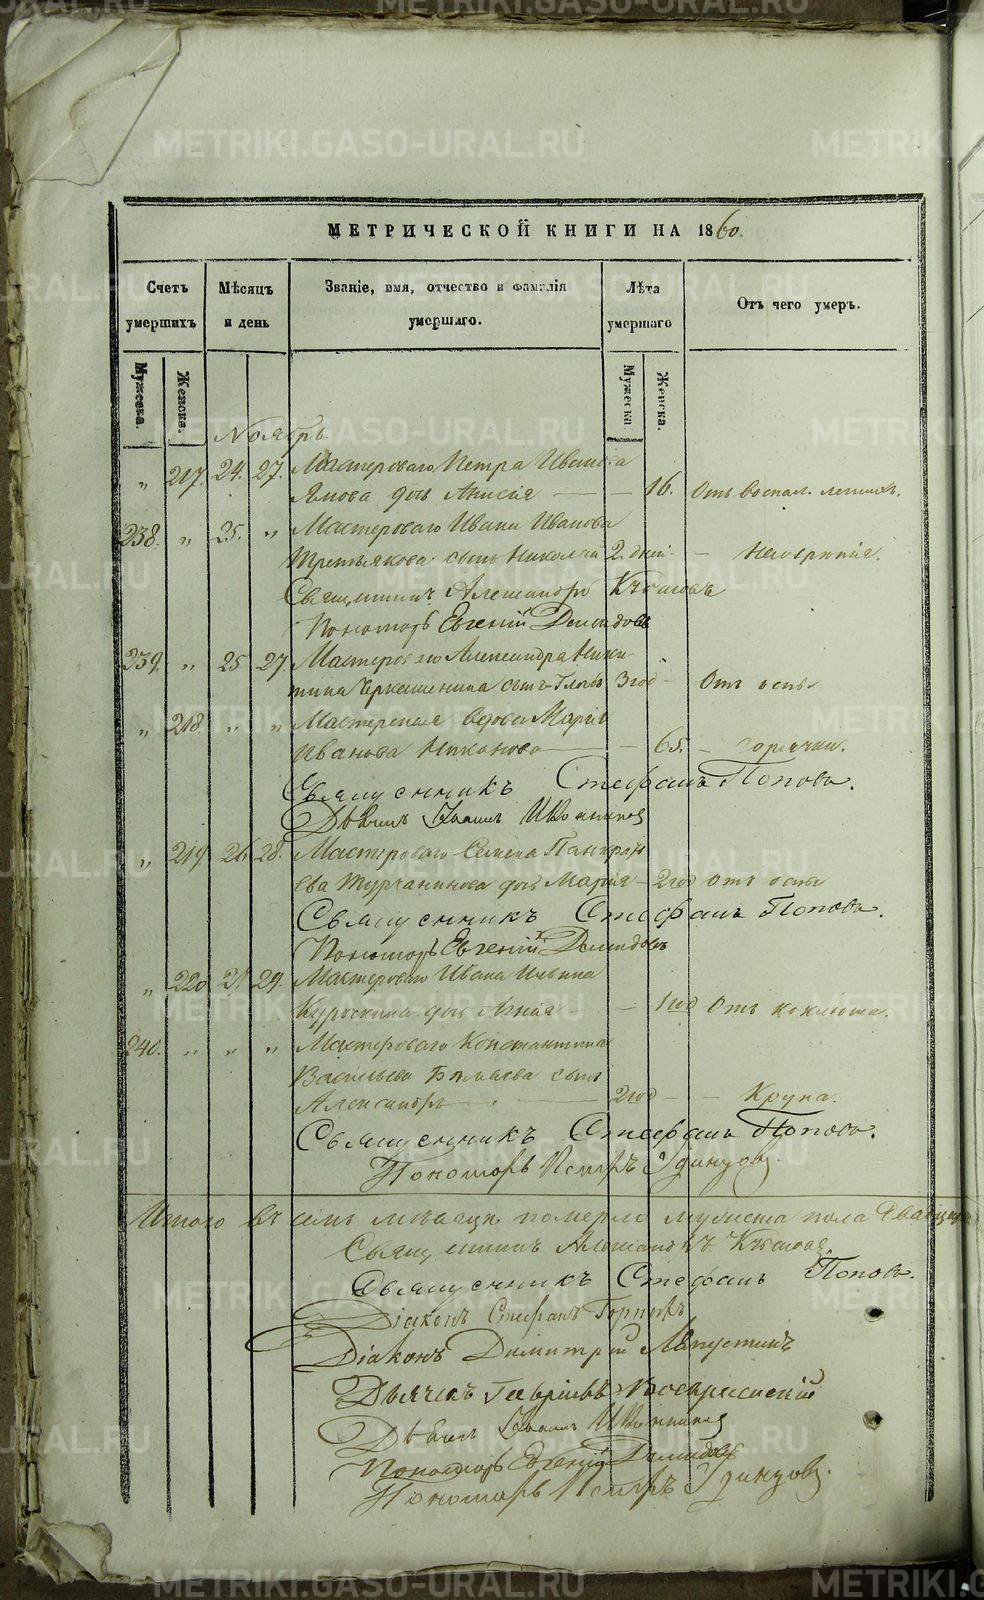 МЕТРИЧЕСКОЙ КНИГИ НА 1860.
Счетъ умершихъ
Мѣсяцъ и день
Званіе, имя, отчество и фамилія умершаго.
Лѣта умершаго
Отъ чего умеръ.
Мужеска.
Женска.
Мужеска
Женска.
Ноябрь
" 217. 24. 27. Мастероваго Петра Иванова
дочь Анисія — — 16. Отъ воспал. легкихъ.
238. " 25. " Мастероваго Ивана Иванова
Третьякова сынъ Николай 2. дней —
Священникъ Александръ
Пономарь Евгеній Демидовъ
239. " 25 27 Мастероваго Александра Ники-
тина Черкашенина сынъ Глѣбъ 3 год — Отъ оспы
" 218. " " Мастерская вдова Марія
Иванова — — 65. — горячки.
Священникъ Стефанъ Поповъ.
Дьячекъ Іоаннъ
" 219. 26. 28. Мастероваго Семена Панкрать-
ева Турчанинова дочь Марія — 2 год Отъ оспы
Священникъ Стефанъ Поповъ.
Пономарь Евгеній Демидовъ
" 220 29. Мастероваго Ивана Ильина
дочь — 1 год Отъ коклюша.
240. " " " Мастероваго Константина
Васильева сынъ
Александръ — 2 год — — Крупа.
Священникъ Стефанъ Поповъ.
Пономарь Петръ Удинцовъ.
Итого въ семъ мѣсяцѣ померло мужеска пола
Священникъ Александръ
Священникъ Стефанъ Поповъ.
Діаконъ Стефанъ
Діаконъ Димитрій
Дьячекъ Гавріилъ Воскресенскій
Дьячекъ Іоаннъ
Пономарь Евгеній Демидовъ
Пономарь Петръ Удинцовъ.
METRIKI.GASO-URAL.RU